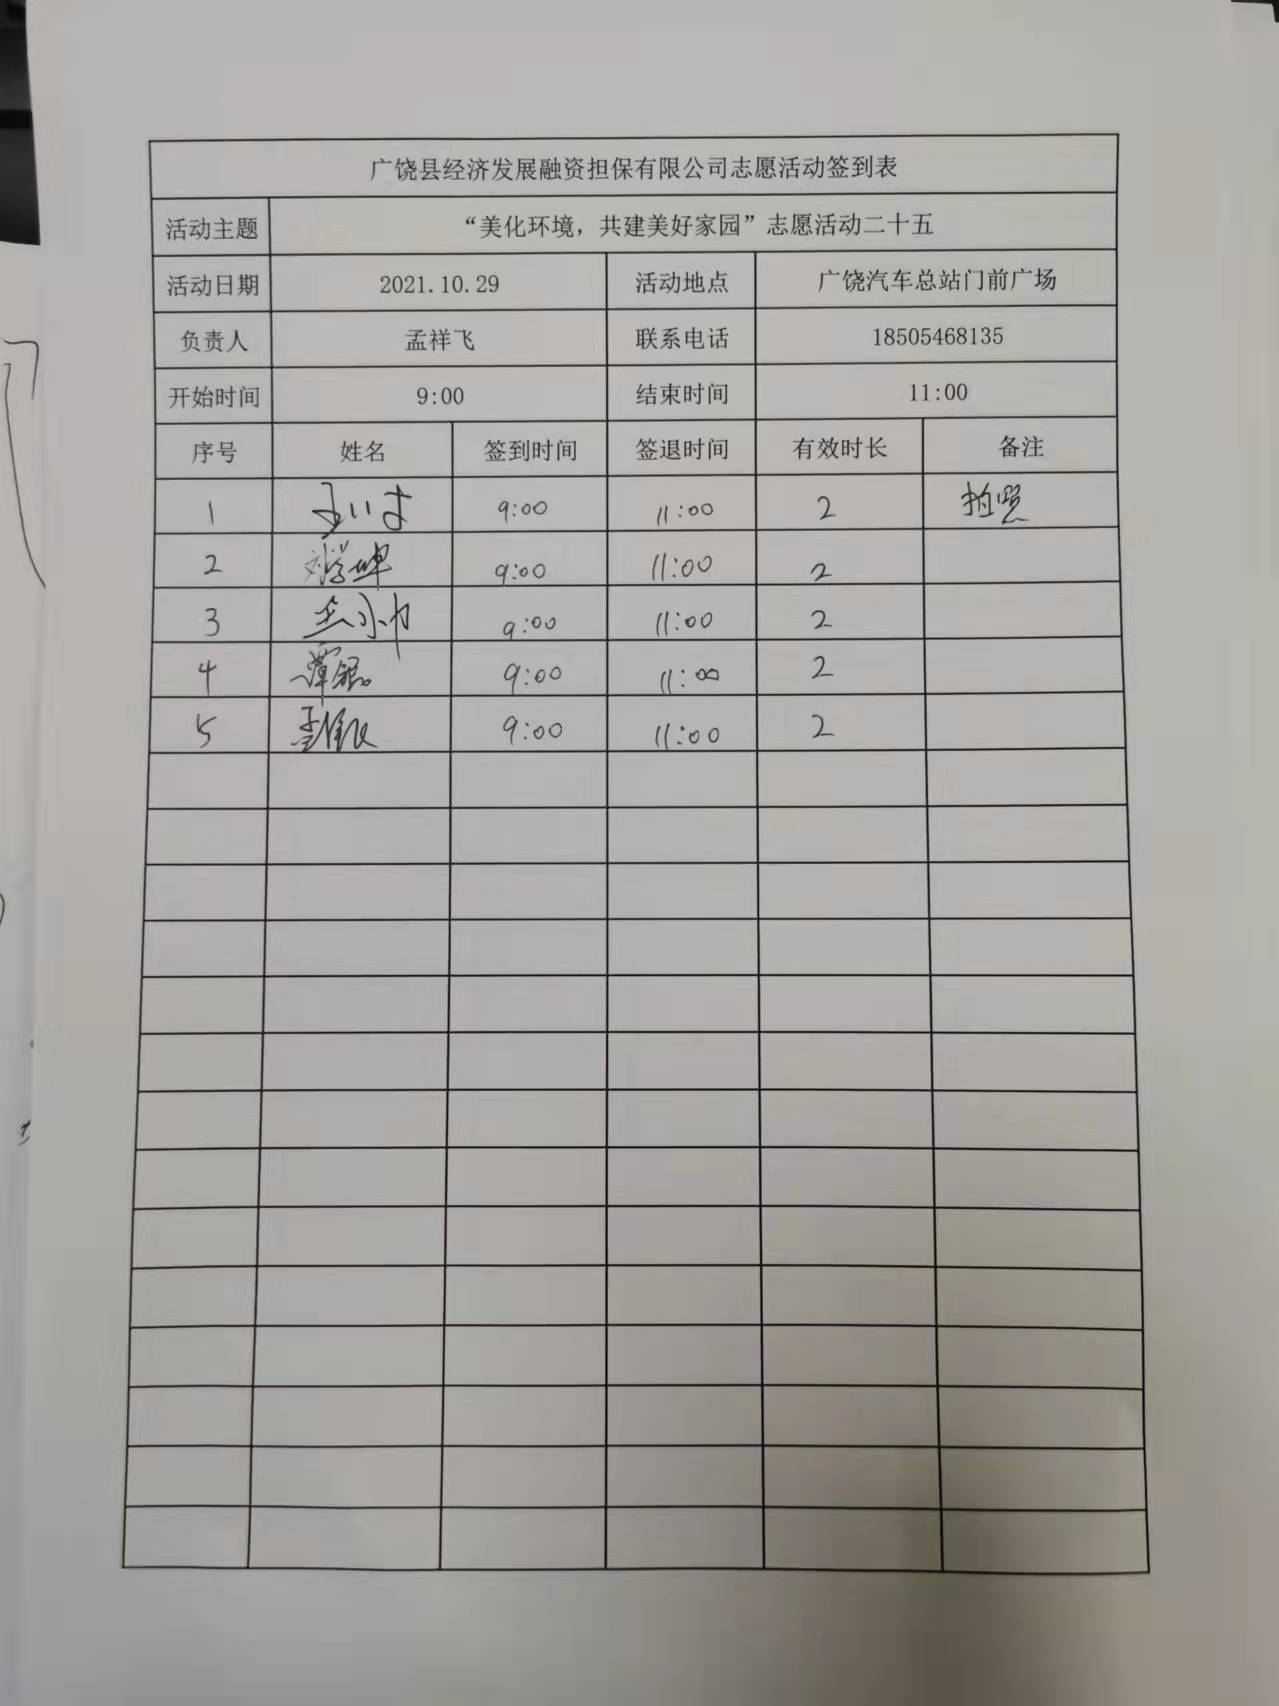 广饶县经济发展融资担保有限公司志愿活动签到表
活动主题 “美化环境，共建美好家园”志愿活动二十五
活动日期 2021.10.29 活动地点 广饶汽车总站门前广场
负责人 孟祥飞 联系电话 18505468135
开始时间 9:00 结束时间 11:00
序号 姓名 签到时间 签退时间 有效时长 备注
1 9:00 11:00 2 拍照
2 9:00 11:00 2
3 9:00 11:00 2
4 9:00 11:00 2
5 9:00 11:00 2